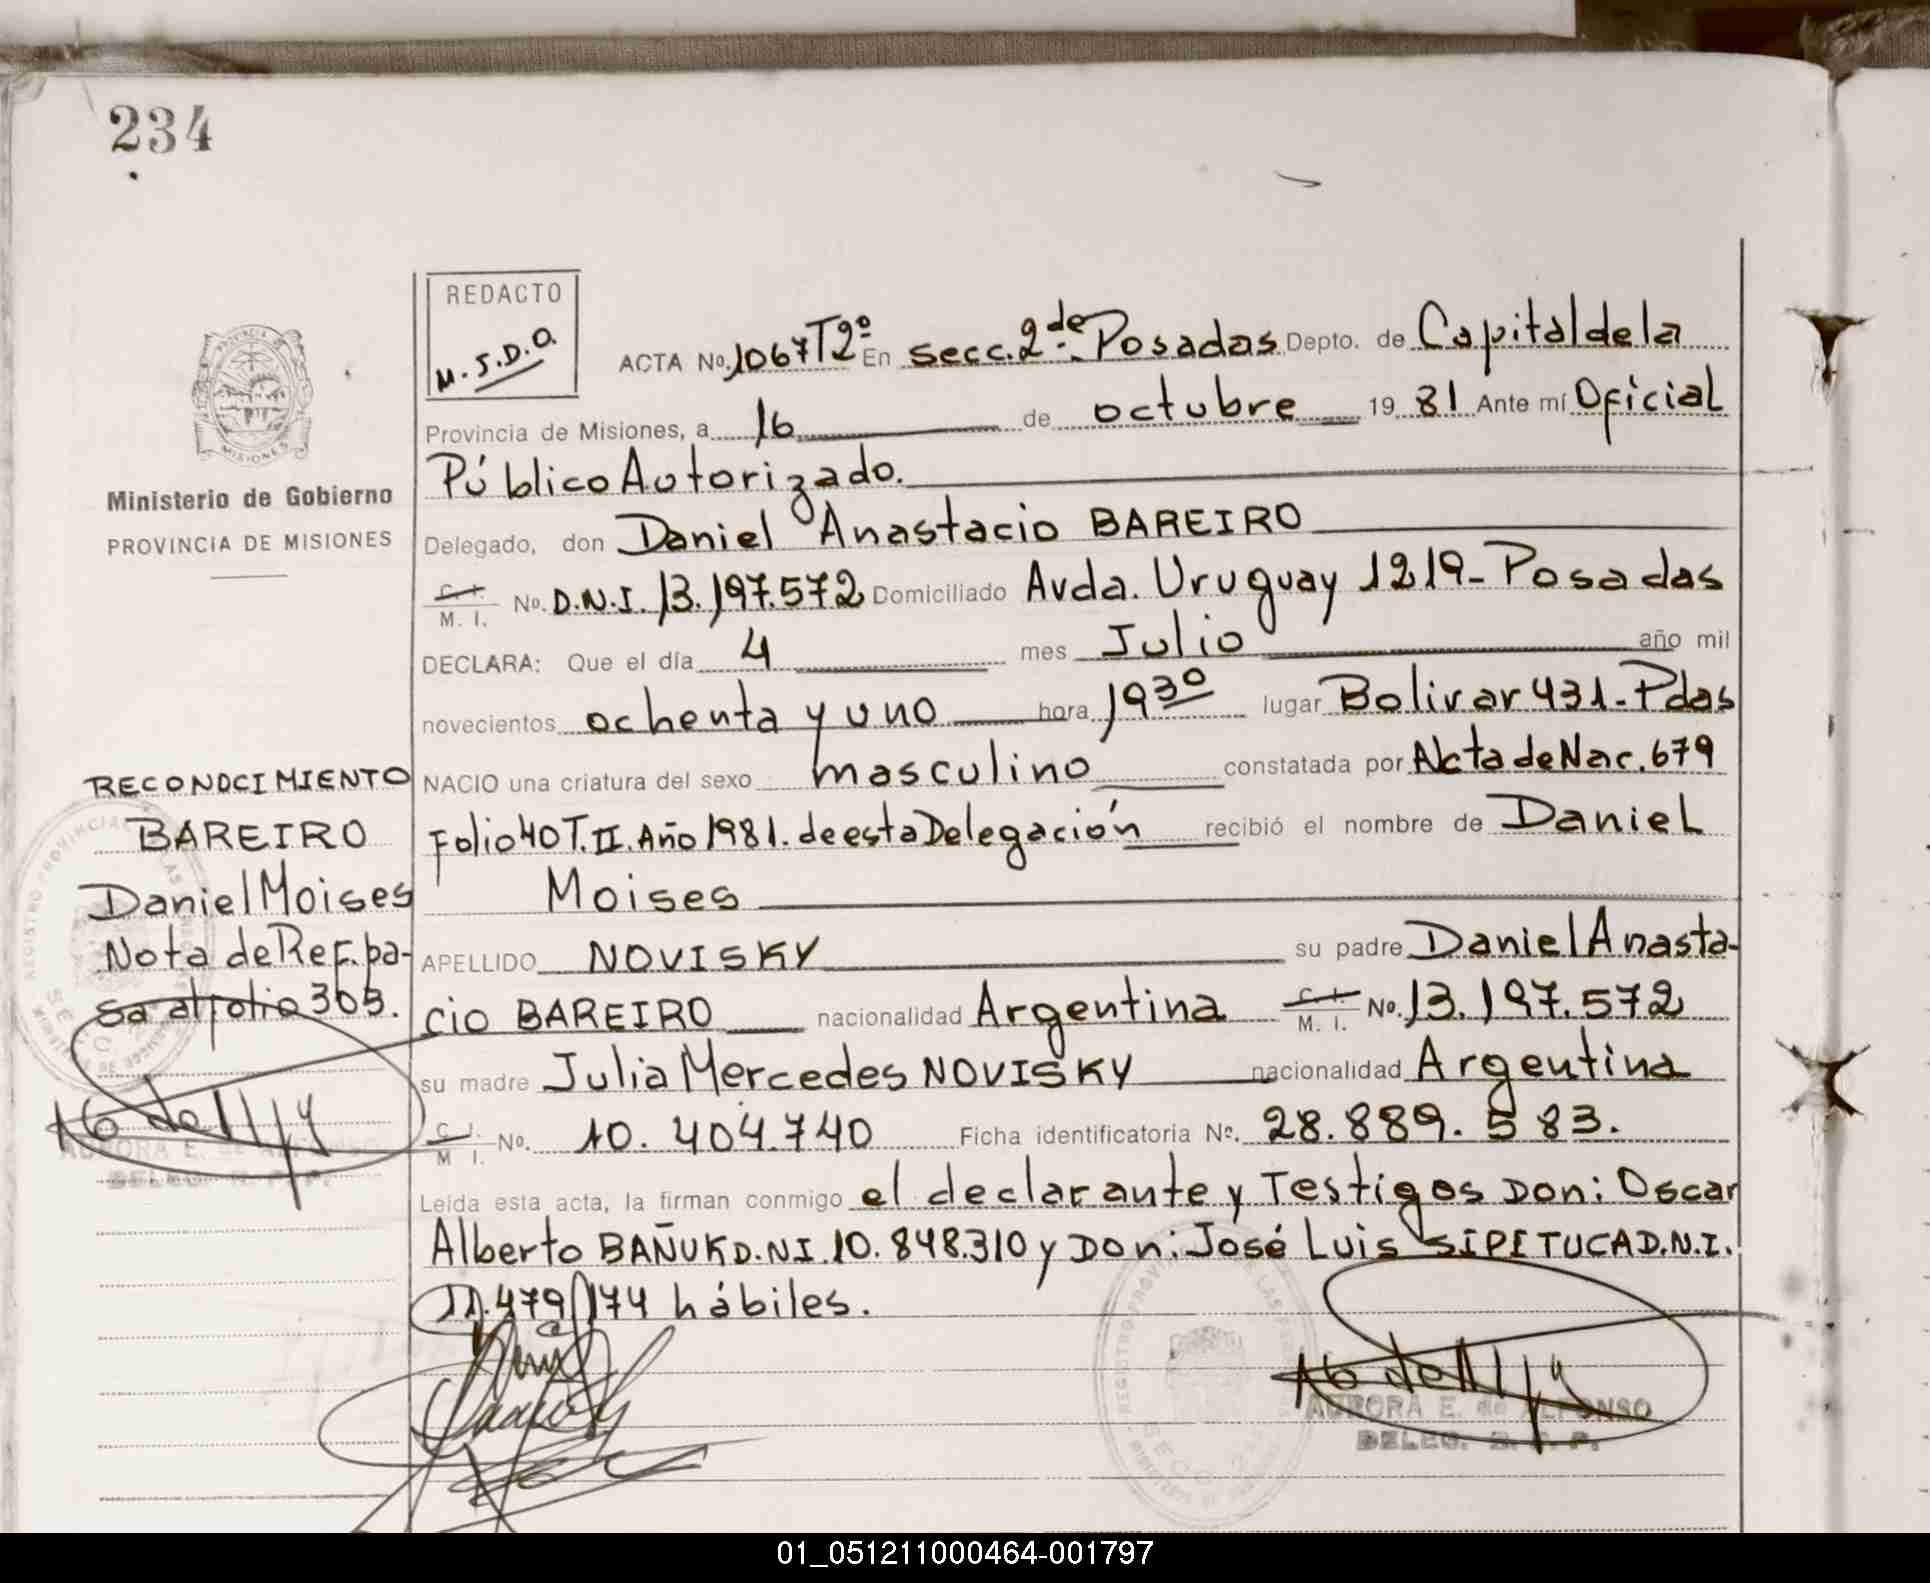 234
REDACTO
M.S.D.O.
ACTA No. 1067 T2º En secc. 2da. Posadas Depto. de Capital de la
Provincia de Misiones, a 16 de octubre 19 81 Ante mí Oficial
Público Autorizado.
Delegado, don Daniel Anastacio BAREIRO
C. I. M. I. No. D.N.I. 13.197.572 Domiciliado Avda. Uruguay 1219- Posadas
DECLARA: Que el día 4 mes Julio año mil
novecientos ochenta y uno hora 19 30 lugar Bolivar 431- Pdas
NACIO una criatura del sexo masculino constatada por Acta de Nac. 679
Folio 40 T. II. Año 1981. de esta Delegación recibió el nombre de Daniel
Moises
APELLIDO NOVISKY su padre Daniel Anasta-
cio BAREIRO nacionalidad Argentina C. I. M. I. No. 13.197.572
su madre Julia Mercedes NOVISKY nacionalidad Argentina
C. I. M. I. No. 10.404.740 Ficha identificatoria No. 28.889.583.
Leída esta acta, la firman conmigo el declarante y Testigos Don: Oscar
Alberto BAÑUK D.N.I. 10.848.310 y Don: José Luis SIPITUCA D.N.I.
11.479.174 hábiles.
PROVINCIA
MISIONES
Ministerio de Gobierno
PROVINCIA DE MISIONES
RECONOCIMIENTO
BAREIRO
Daniel Moises
Nota de Ref. pa-
sa al folio 303.
AURORA E. de ALFONSO
DELEG. R. P. P.
REGISTRO PROVINCIAL DE LAS PERSONAS
SECC. 2
AURORA E. de ALFONSO
DELEG. R. P. P.
01_051211000464-001797